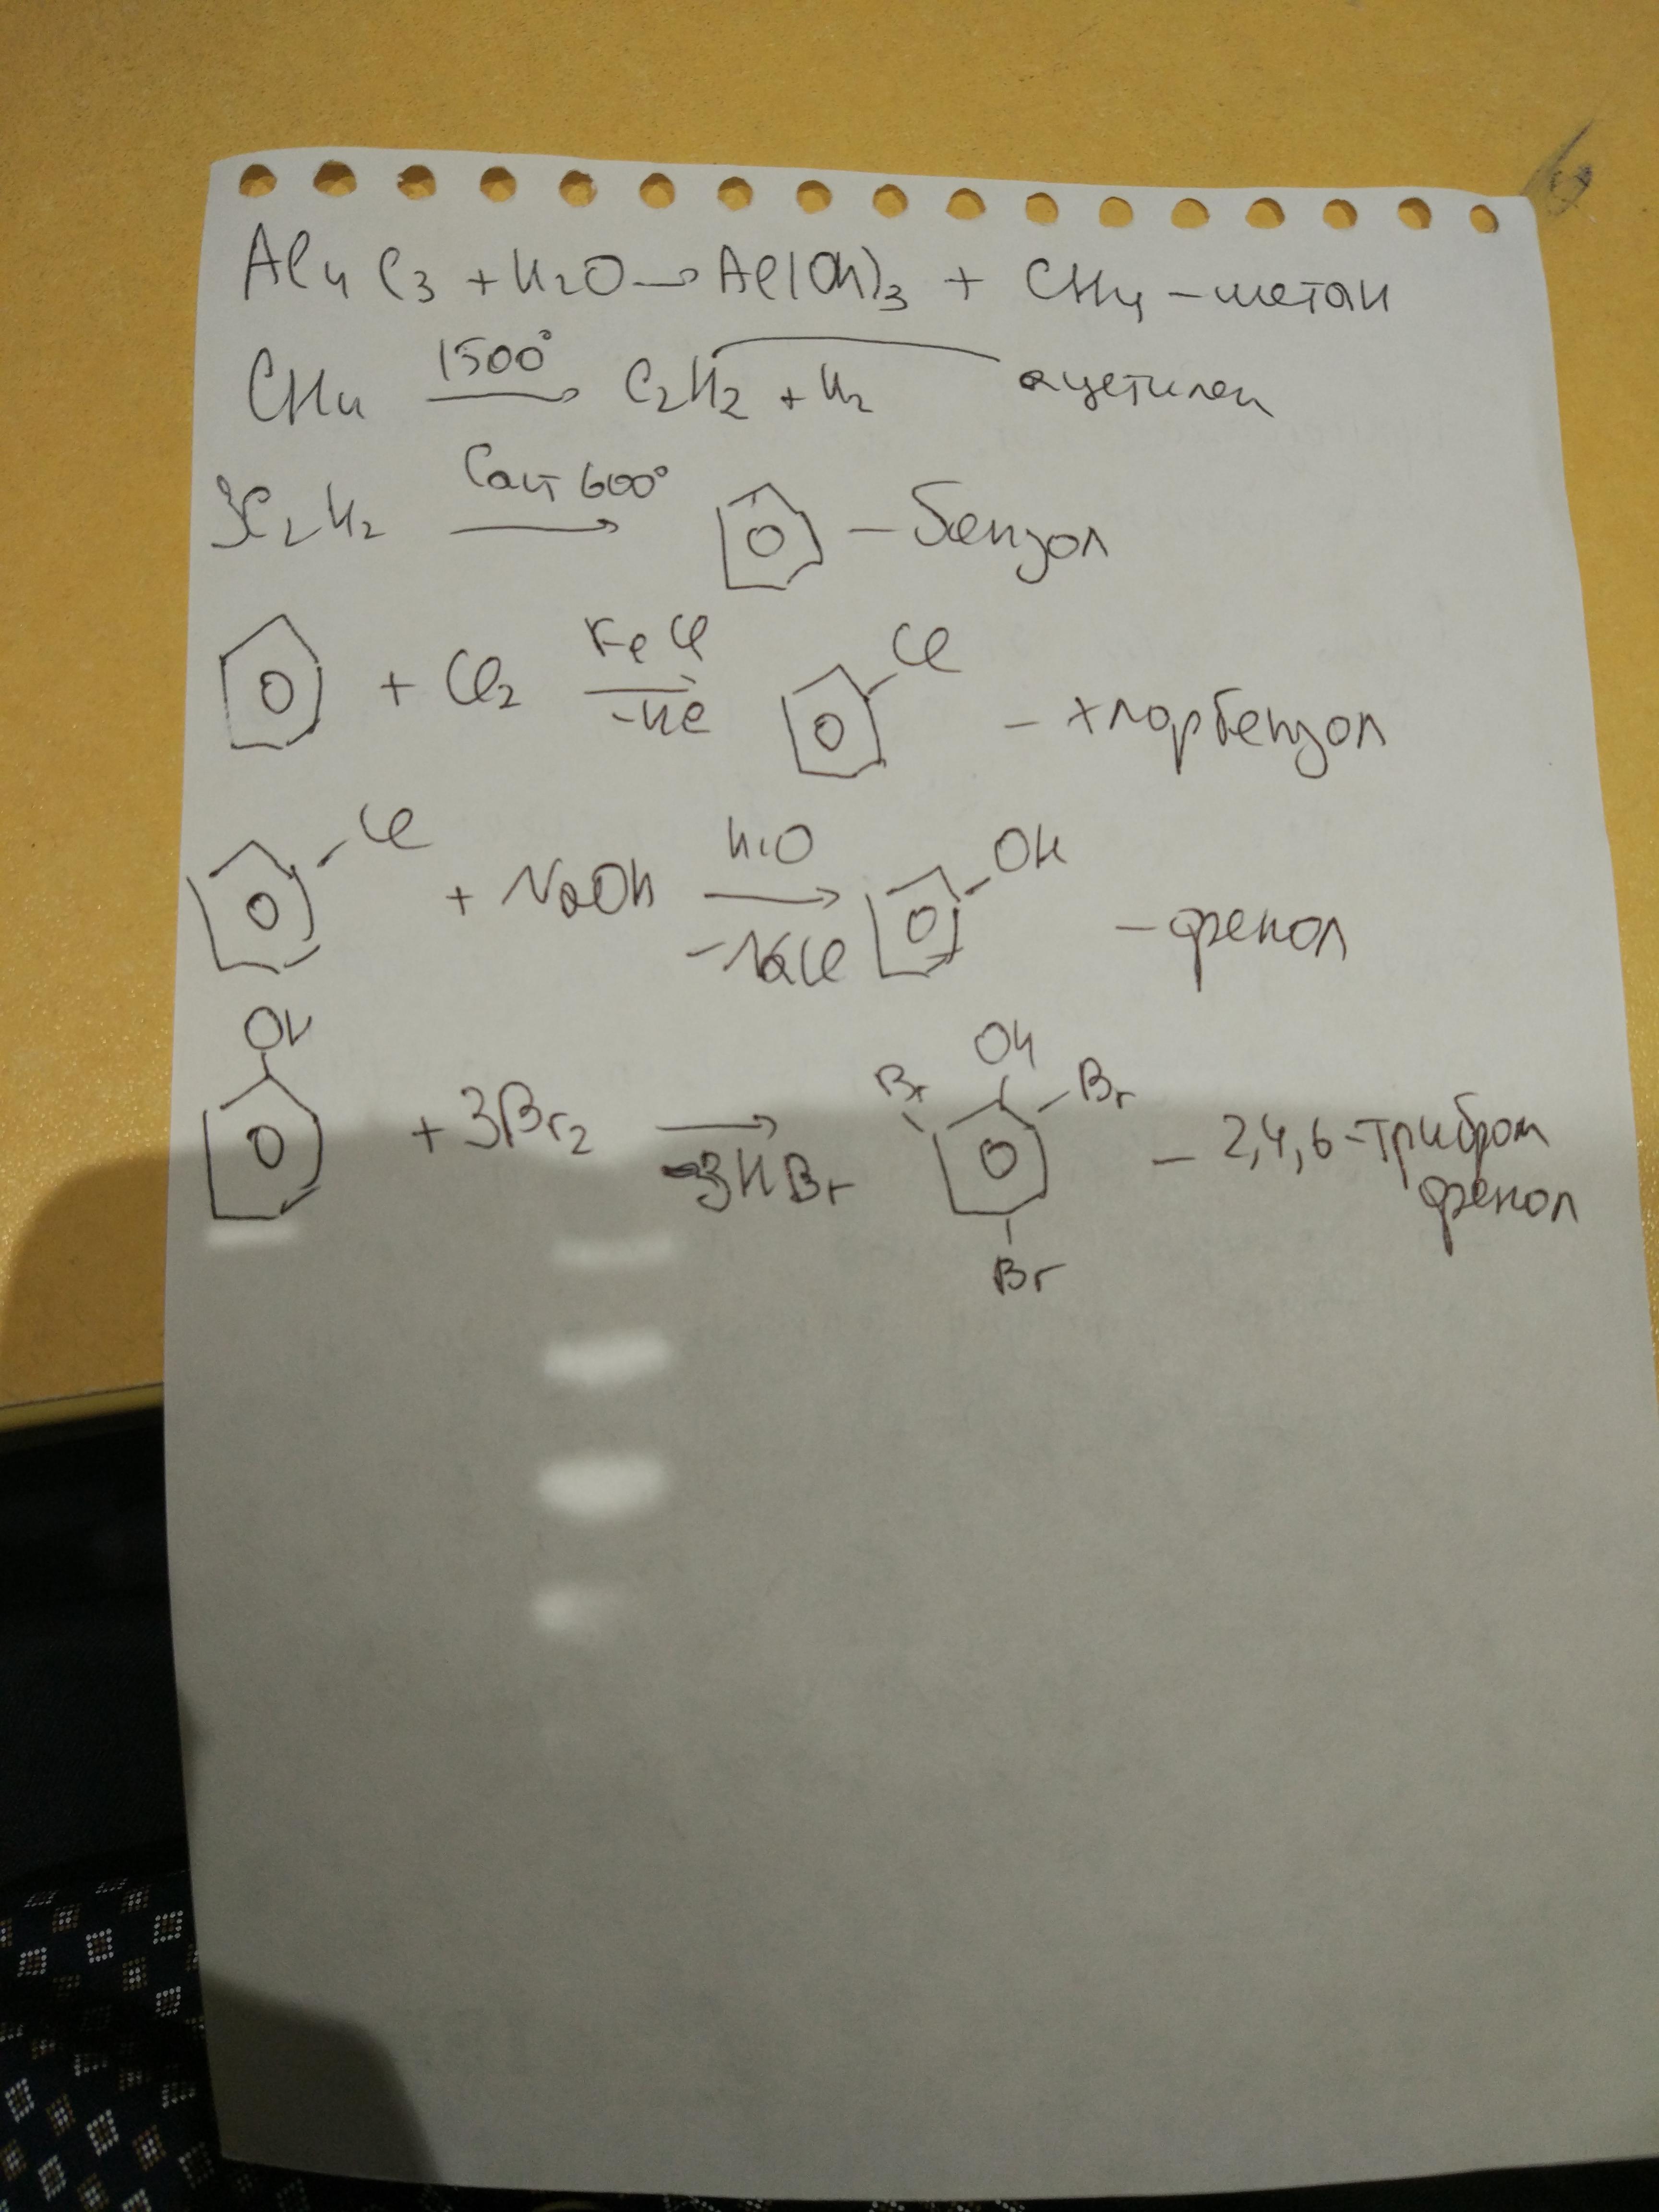 Al4C3 + H2O → Al(OH)3 + CH4 – метан
CH4 1500° → C2H2 + H2 ацетилен
3C2H2 Cакт 600° → – бензол
+ Cl2 FeCl -HCl → Cl – хлорбензол
Cl + NaOH H2O -NaCl → OH – фенол
OH + 3Br2 → -3HBr OH Br Br Br – 2,4,6-трибром
фенол